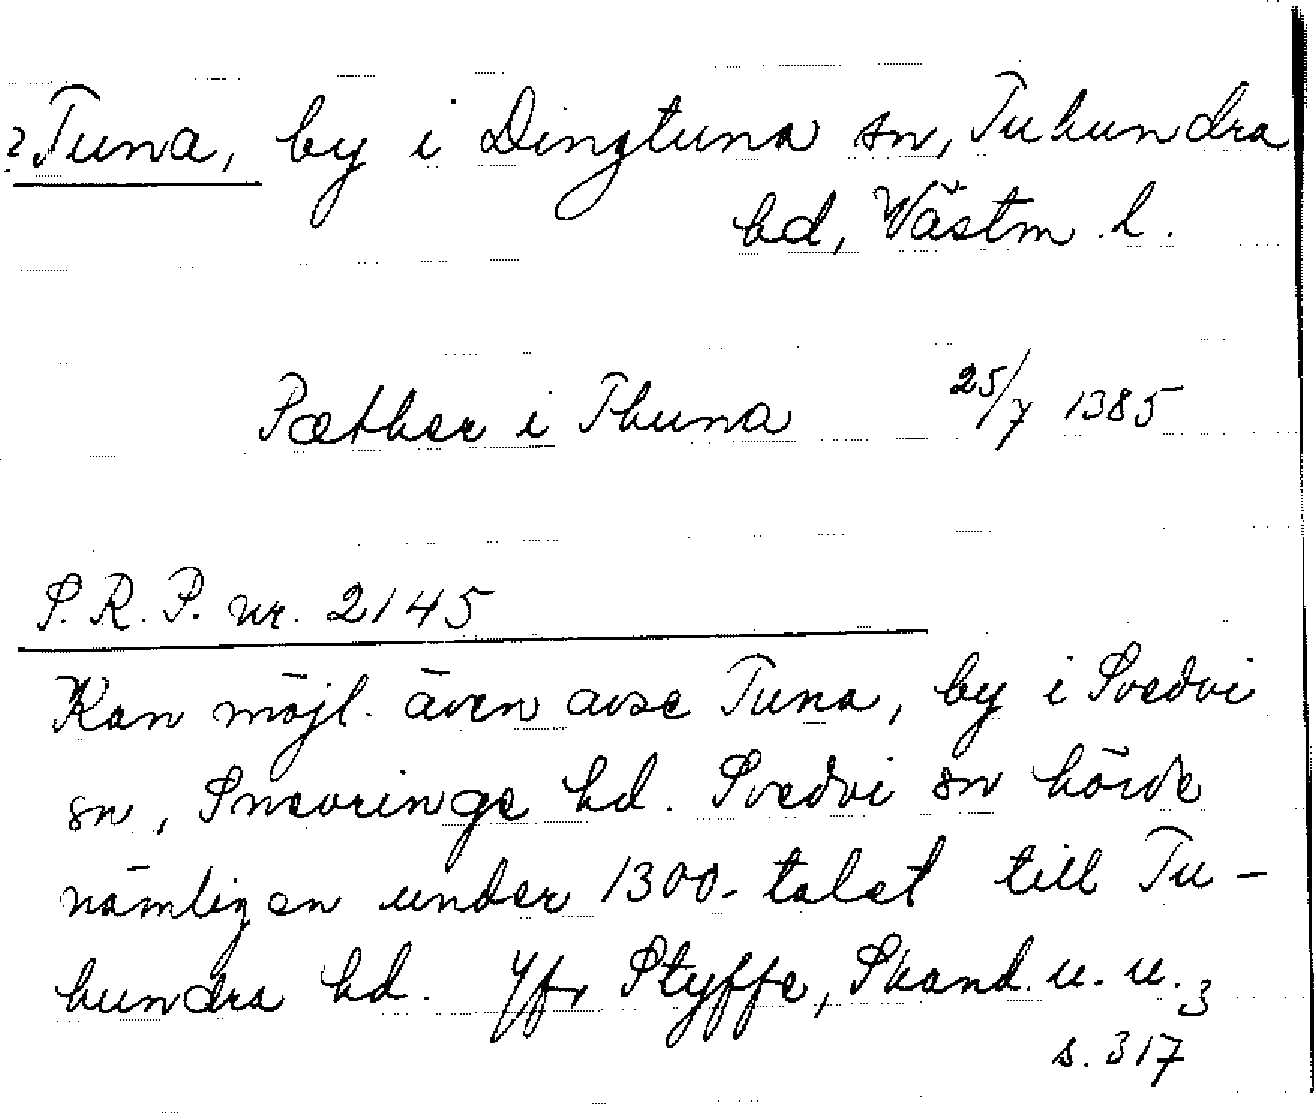 ? Tuna, by i Dingtuna sn, Tuhundra
hd, Västm. l.
Pæther i Thuna 25/7 1385
S.R.P. nr. 2145
Kan möjl. även avse Tuna, by i Svedvi
sn, Snevringe hd. Svedvi sn hörde
nämligen under 1300-talet till Tu-
hundra hd. Jfr Styffe, Skand. u. u.3
s. 317